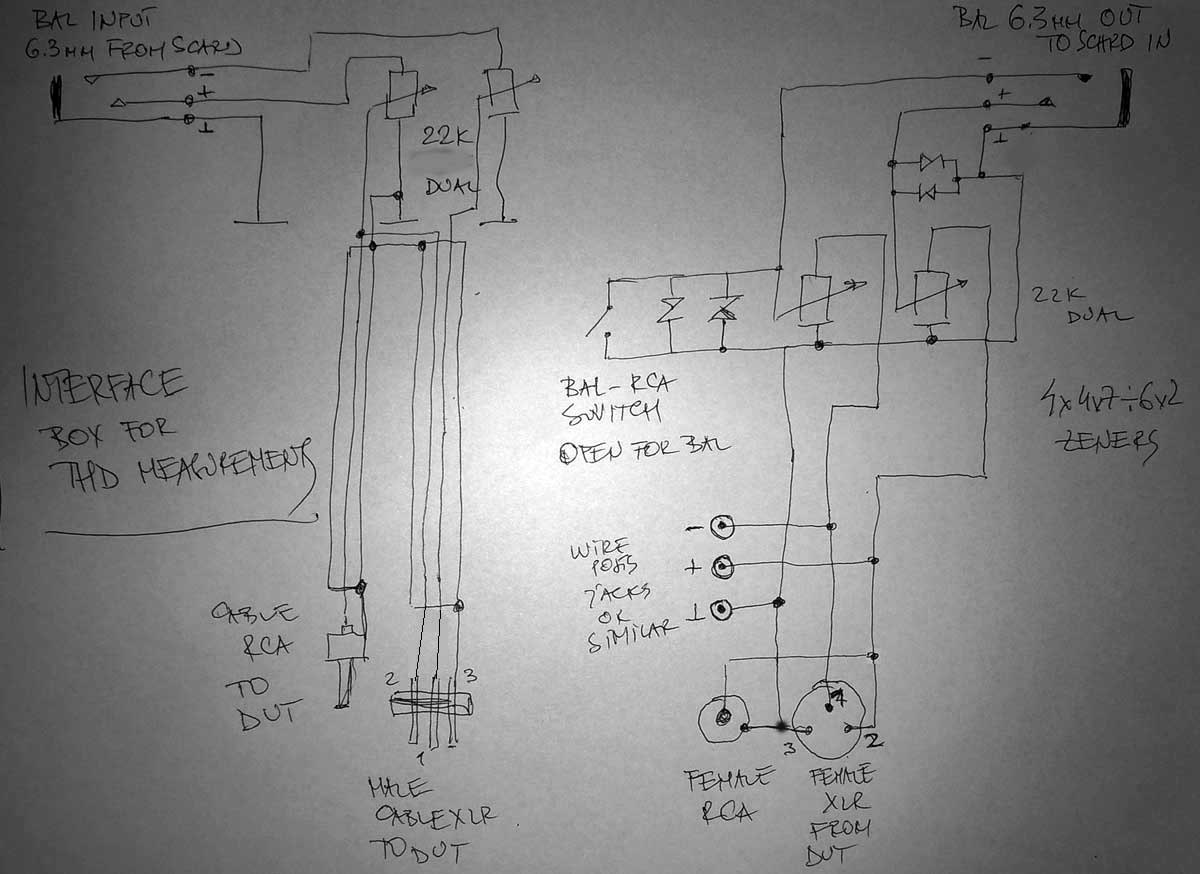 BAL INPUT
6.3MM FROM SCARD
-
+
⊥
22K
DUAL
BAL 6.3MM OUT
TO SCARD IN
-
+
⊥
22K
DUAL
4x4v7÷6v2
ZENERS
BAL-RCA
SWITCH
OPEN FOR BAL
INTERFACE
BOX FOR
THD MEASUREMENTS
WIRE
POSTS
JACKS
OR
SIMILAR
-
+
⊥
CABLE
RCA
TO
DUT
2
3
1
MALE
CABLE XLR
TO DUT
3
2
FEMALE
RCA
FEMALE
XLR
FROM
DUT